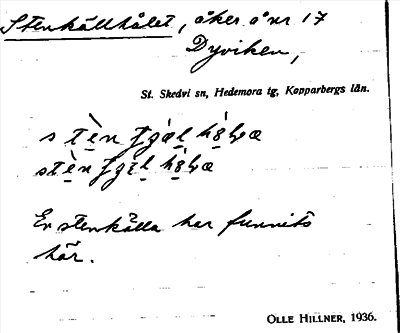 Stenkällhålet, åker å nr 17
Dyviken,
St. Skedvi sn, Hedemora tg, Kopparbergs län.
En stenkälla har funnits
här.
OLLE HILLNER, 1936.